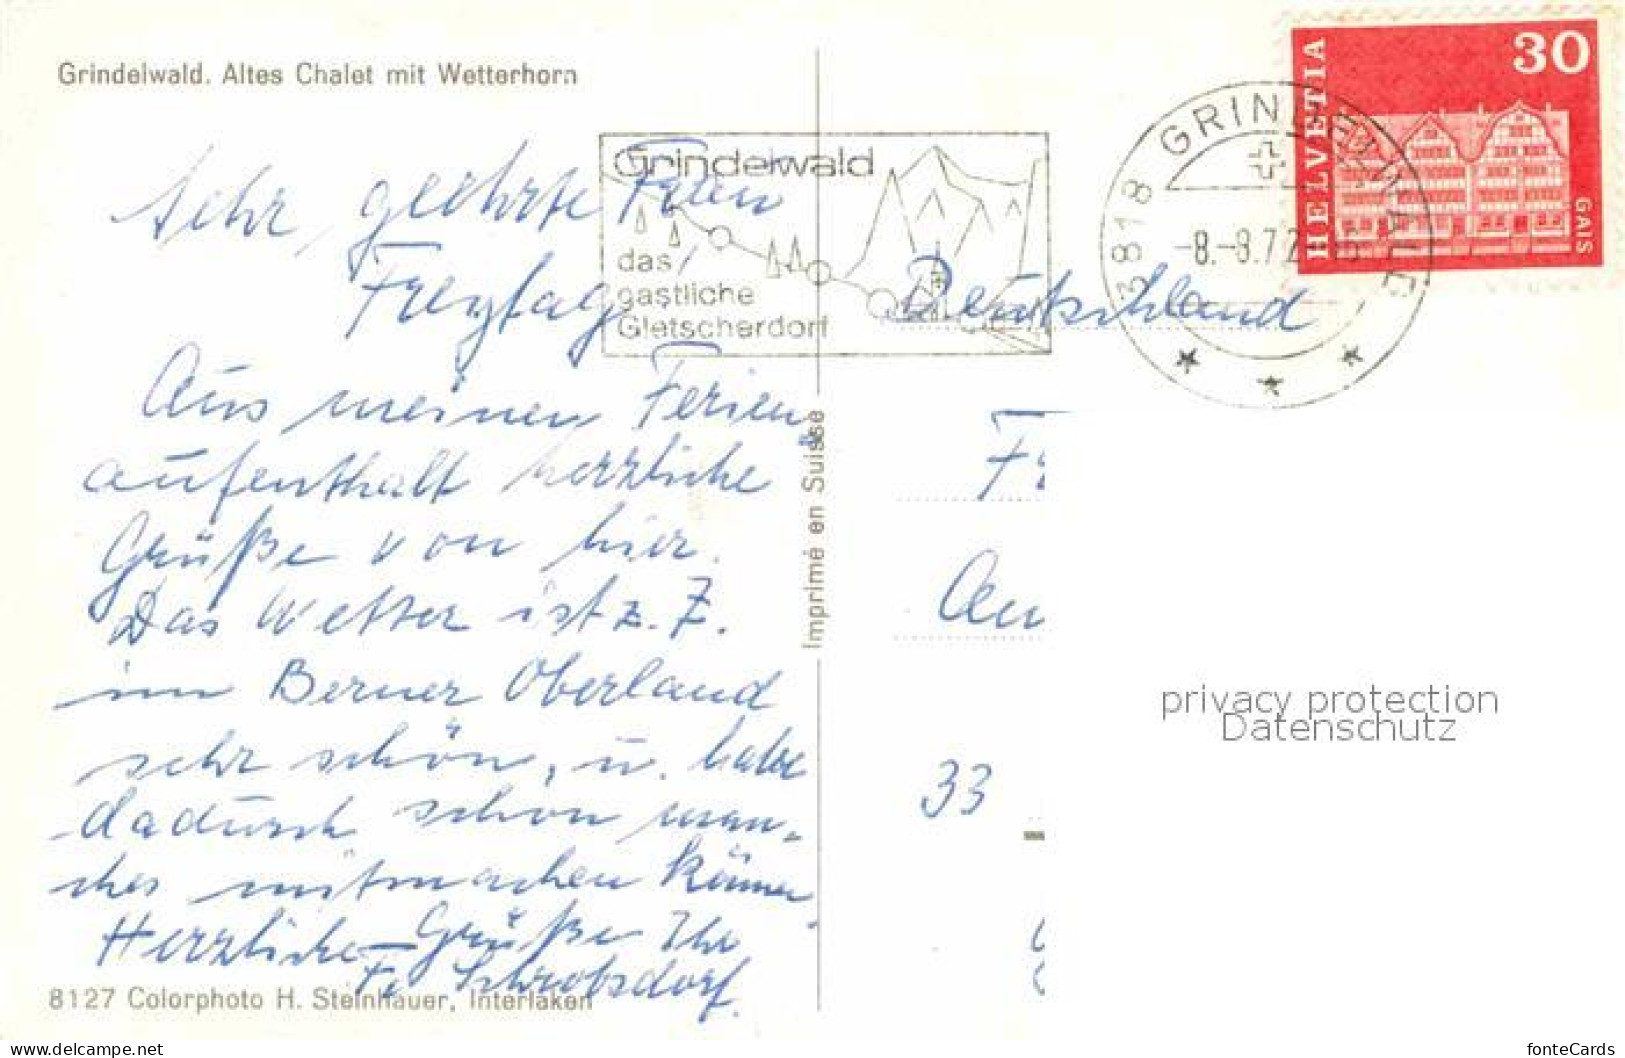 Grindelwald. Altes Chalet mit Wetterhorn
Sehr geehrte Frau
Freytag,
Aus meinen Ferien
aufenthalt herzliche
Grüße von hier.
Das Wetter ist z. Z.
im Berner Oberland
sehr schön, u. habe
dadurch schon man-
ches mitmachen können.
Herzliche Grüße Ihr
Schrobsdorf.
8127 Colorphoto H. Steinhauer, Interlaken
Imprimé en Suisse
Grindelwald
das
gastliche
Gletscherdorf
3818 GRINDELWALD
-8.-8.72
HELVETIA
30
GAIS
Deutschland
33
privacy protection
Datenschutz
www.delcampe.net
fonteCards